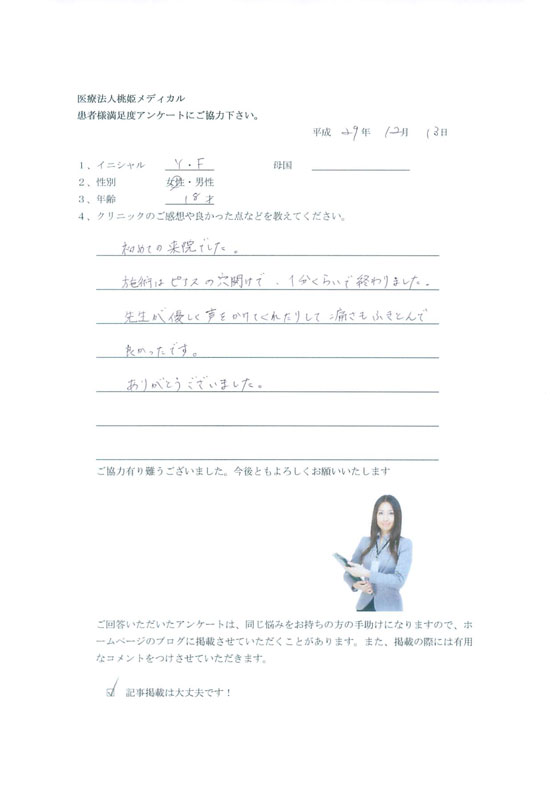 医療法人桃姫メディカル
患者様満足度アンケートにご協力下さい。
平成 29年 12月 13日
1、イニシャル Y・F 母国
2、性別 女性・男性
3、年齢 18才
4、クリニックのご感想や良かった点などを教えてください。
初めての来院でした。
施術はピアスの穴開けで、1分くらいで終わりました。
先生が優しく声をかけてくれたりして痛さもふきとんで
良かったです。
ありがとうございました。
ご協力有り難うございました。今後ともよろしくお願いいたします
ご回答いただいたアンケートは、同じ悩みをお持ちの方の手助けになりますので、ホ
ームページのブログに掲載させていただくことがあります。また、掲載の際には有用
なコメントをつけさせていただきます。
☑ 記事掲載は大丈夫です！